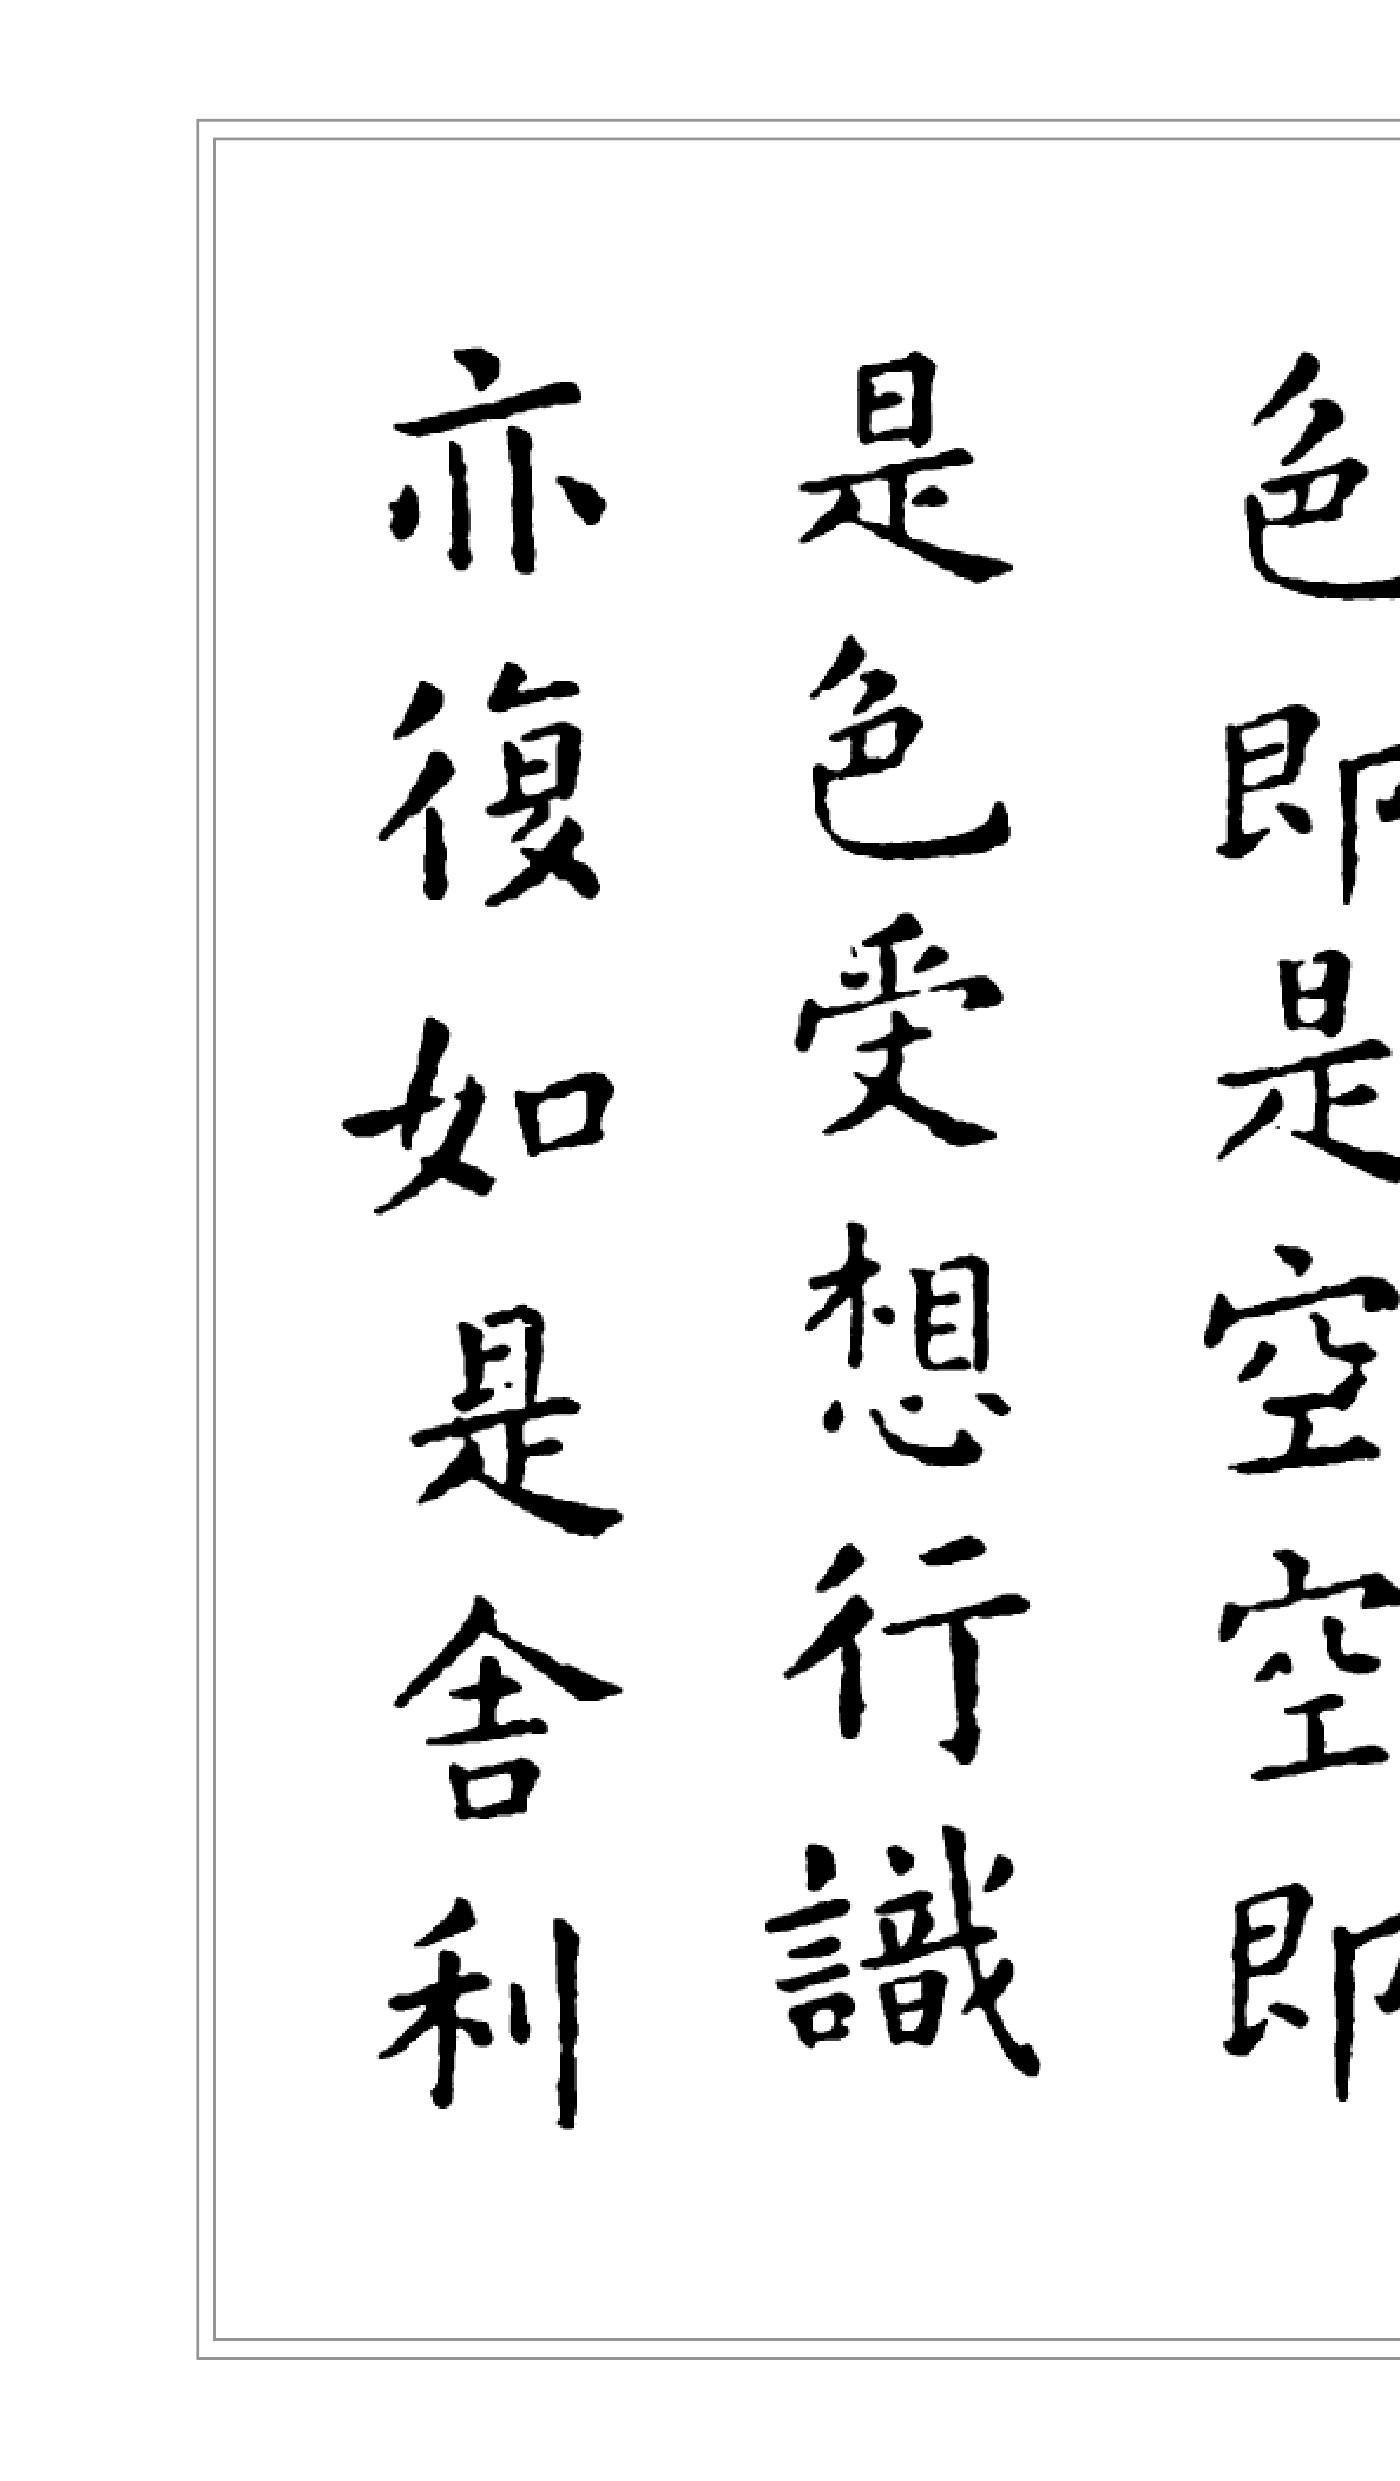 色即是空空即
是色受想行識
亦復如是舍利